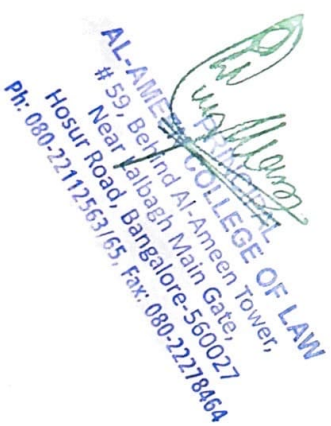 PRINCIPAL
AL-AMEEN COLLEGE OF LAW
# 59, Behind Al-Ameen Tower,
Near Lalbagh Main Gate,
Hosur Road, Bangalore-560027
Ph: 080-22112563/65, Fax: 080-22278464